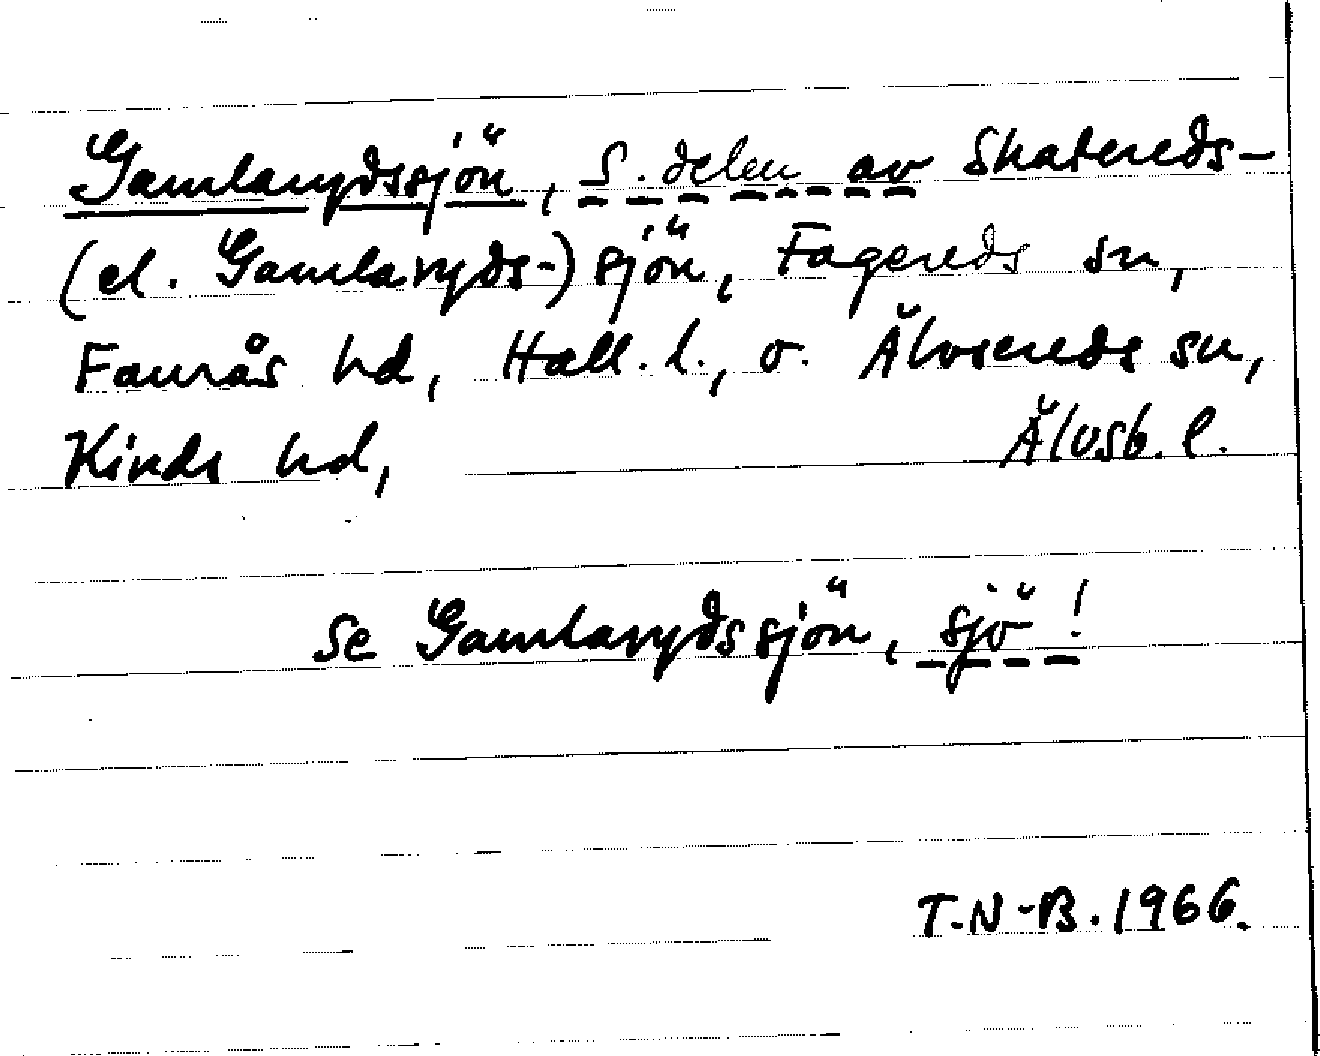 Gamlarydssjön, S. delen av Skatereds-
(el. Gamlaryds-) sjön, Fagereds sn,
Faurås hd, Hall. l., o. Älvsereds sn,
Kinds hd, Älvsb. l.
Se Gamlarydssjön, sjö!
T.N-B. 1966.